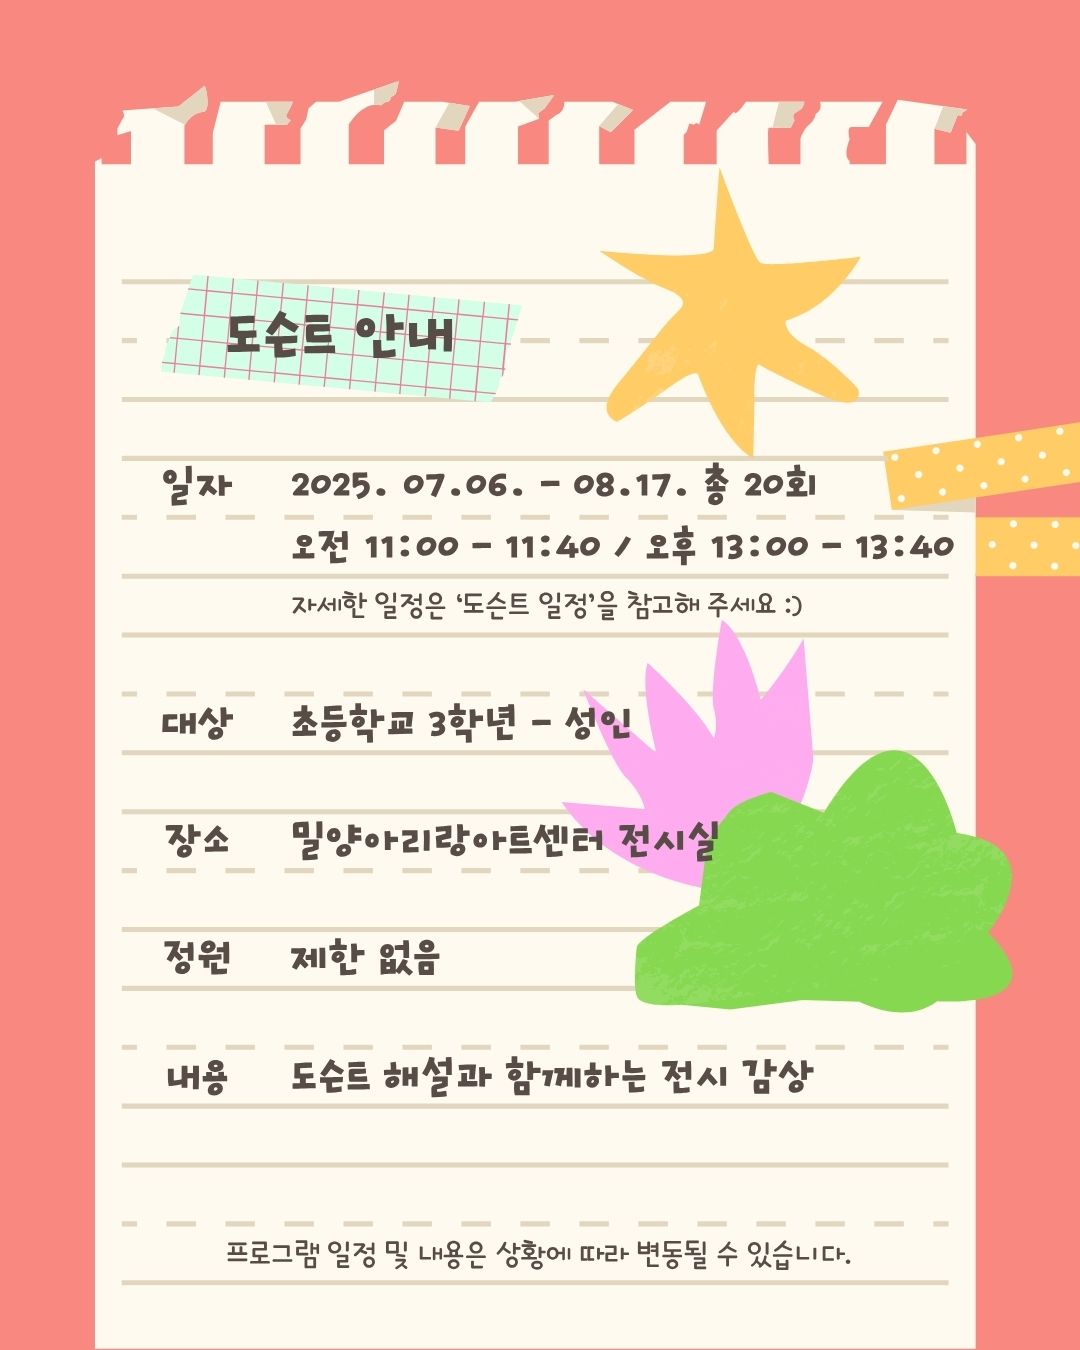 도슨트 안내
일자 2025. 07.06. - 08.17. 총 20회
오전 11:00 - 11:40 / 오후 13:00 - 13:40
자세한 일정은 ‘도슨트 일정’을 참고해 주세요 :)
대상 초등학교 3학년 - 성인
장소 밀양아리랑아트센터 전시실
정원 제한 없음
내용 도슨트 해설과 함께하는 전시 감상
프로그램 일정 및 내용은 상황에 따라 변동될 수 있습니다.